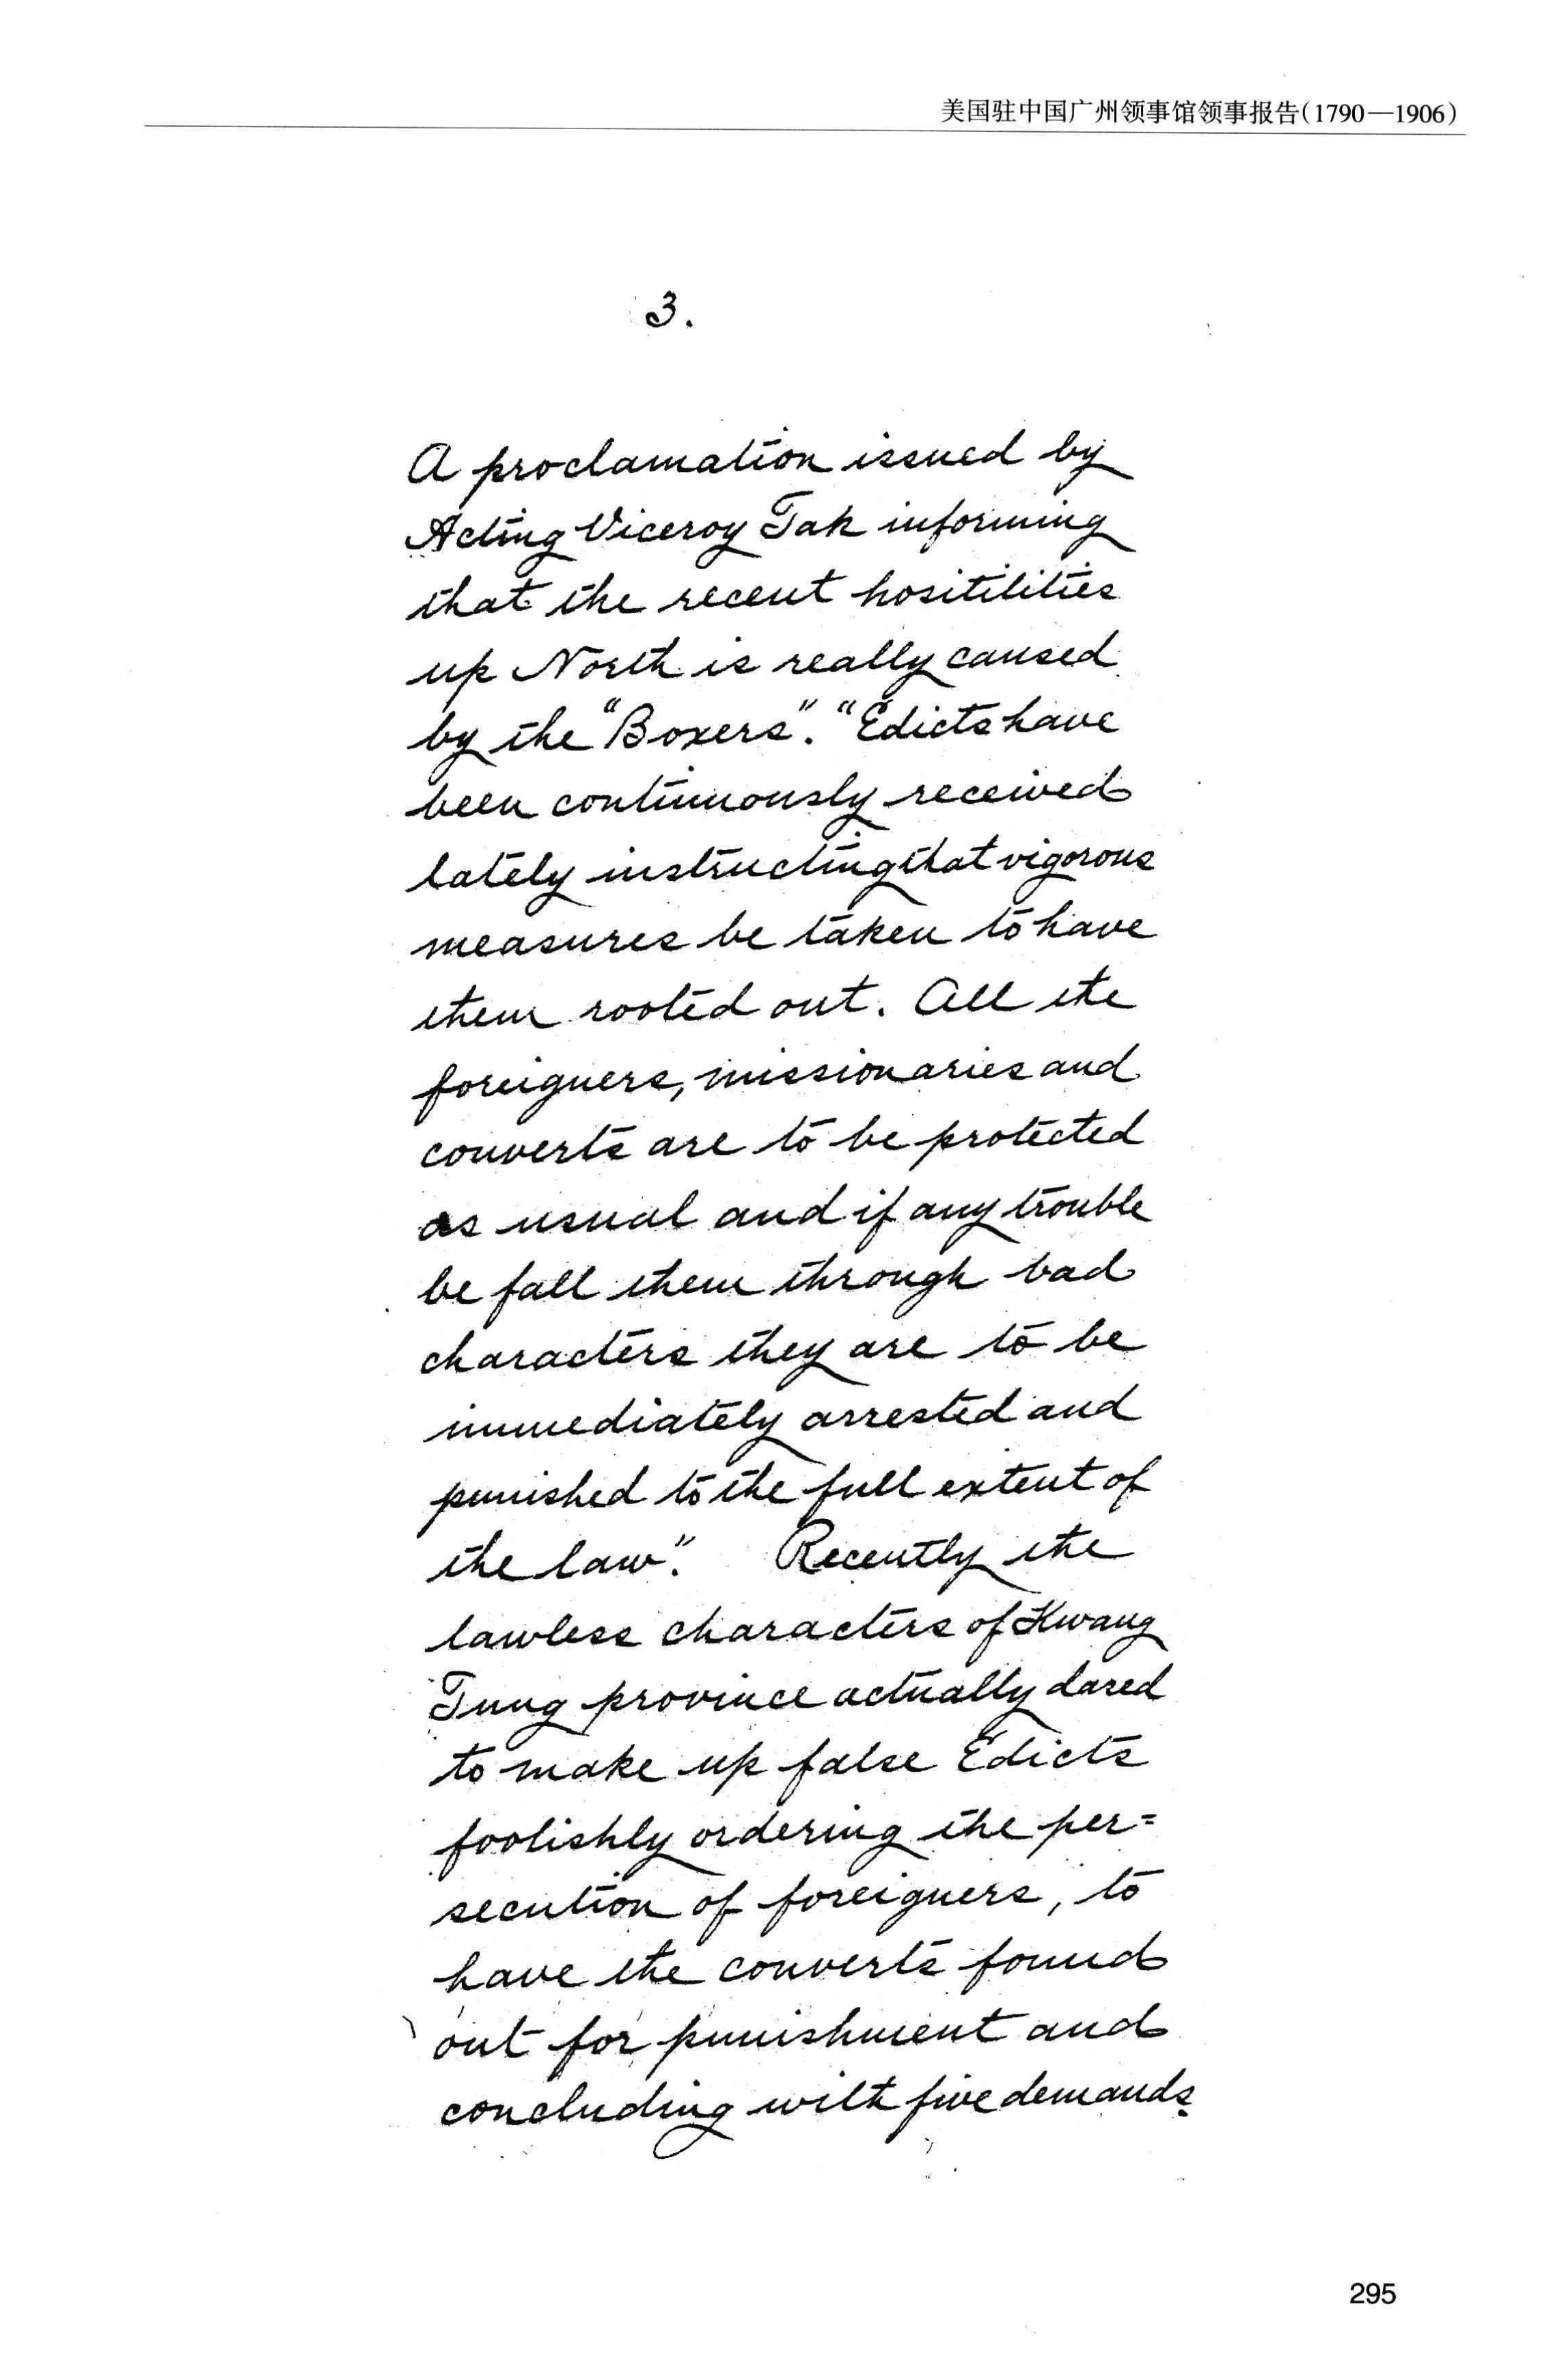 美国驻中国广州领事馆领事报告(1790—1906)
3.
A proclamation issued by
Acting Viceroy Tak informing
that the recent hositilities
up North is really caused
by the "Boxers". "Edicts have
been continuously received
lately instructing that vigorous
measures be taken to have
them rooted out. All the
foreigners, missionaries and
converts are to be protected
as usual and if any trouble
be fall them through bad
characters they are to be
immediately arrested and
punished to the full extent of
the law". Recently the
lawless characters of Kwang
Tung province actually dared
to make up false Edicts
foolishly ordering the per=
secution of foreigners, to
have the converts found
out for punishment and
concluding with five demands.
295